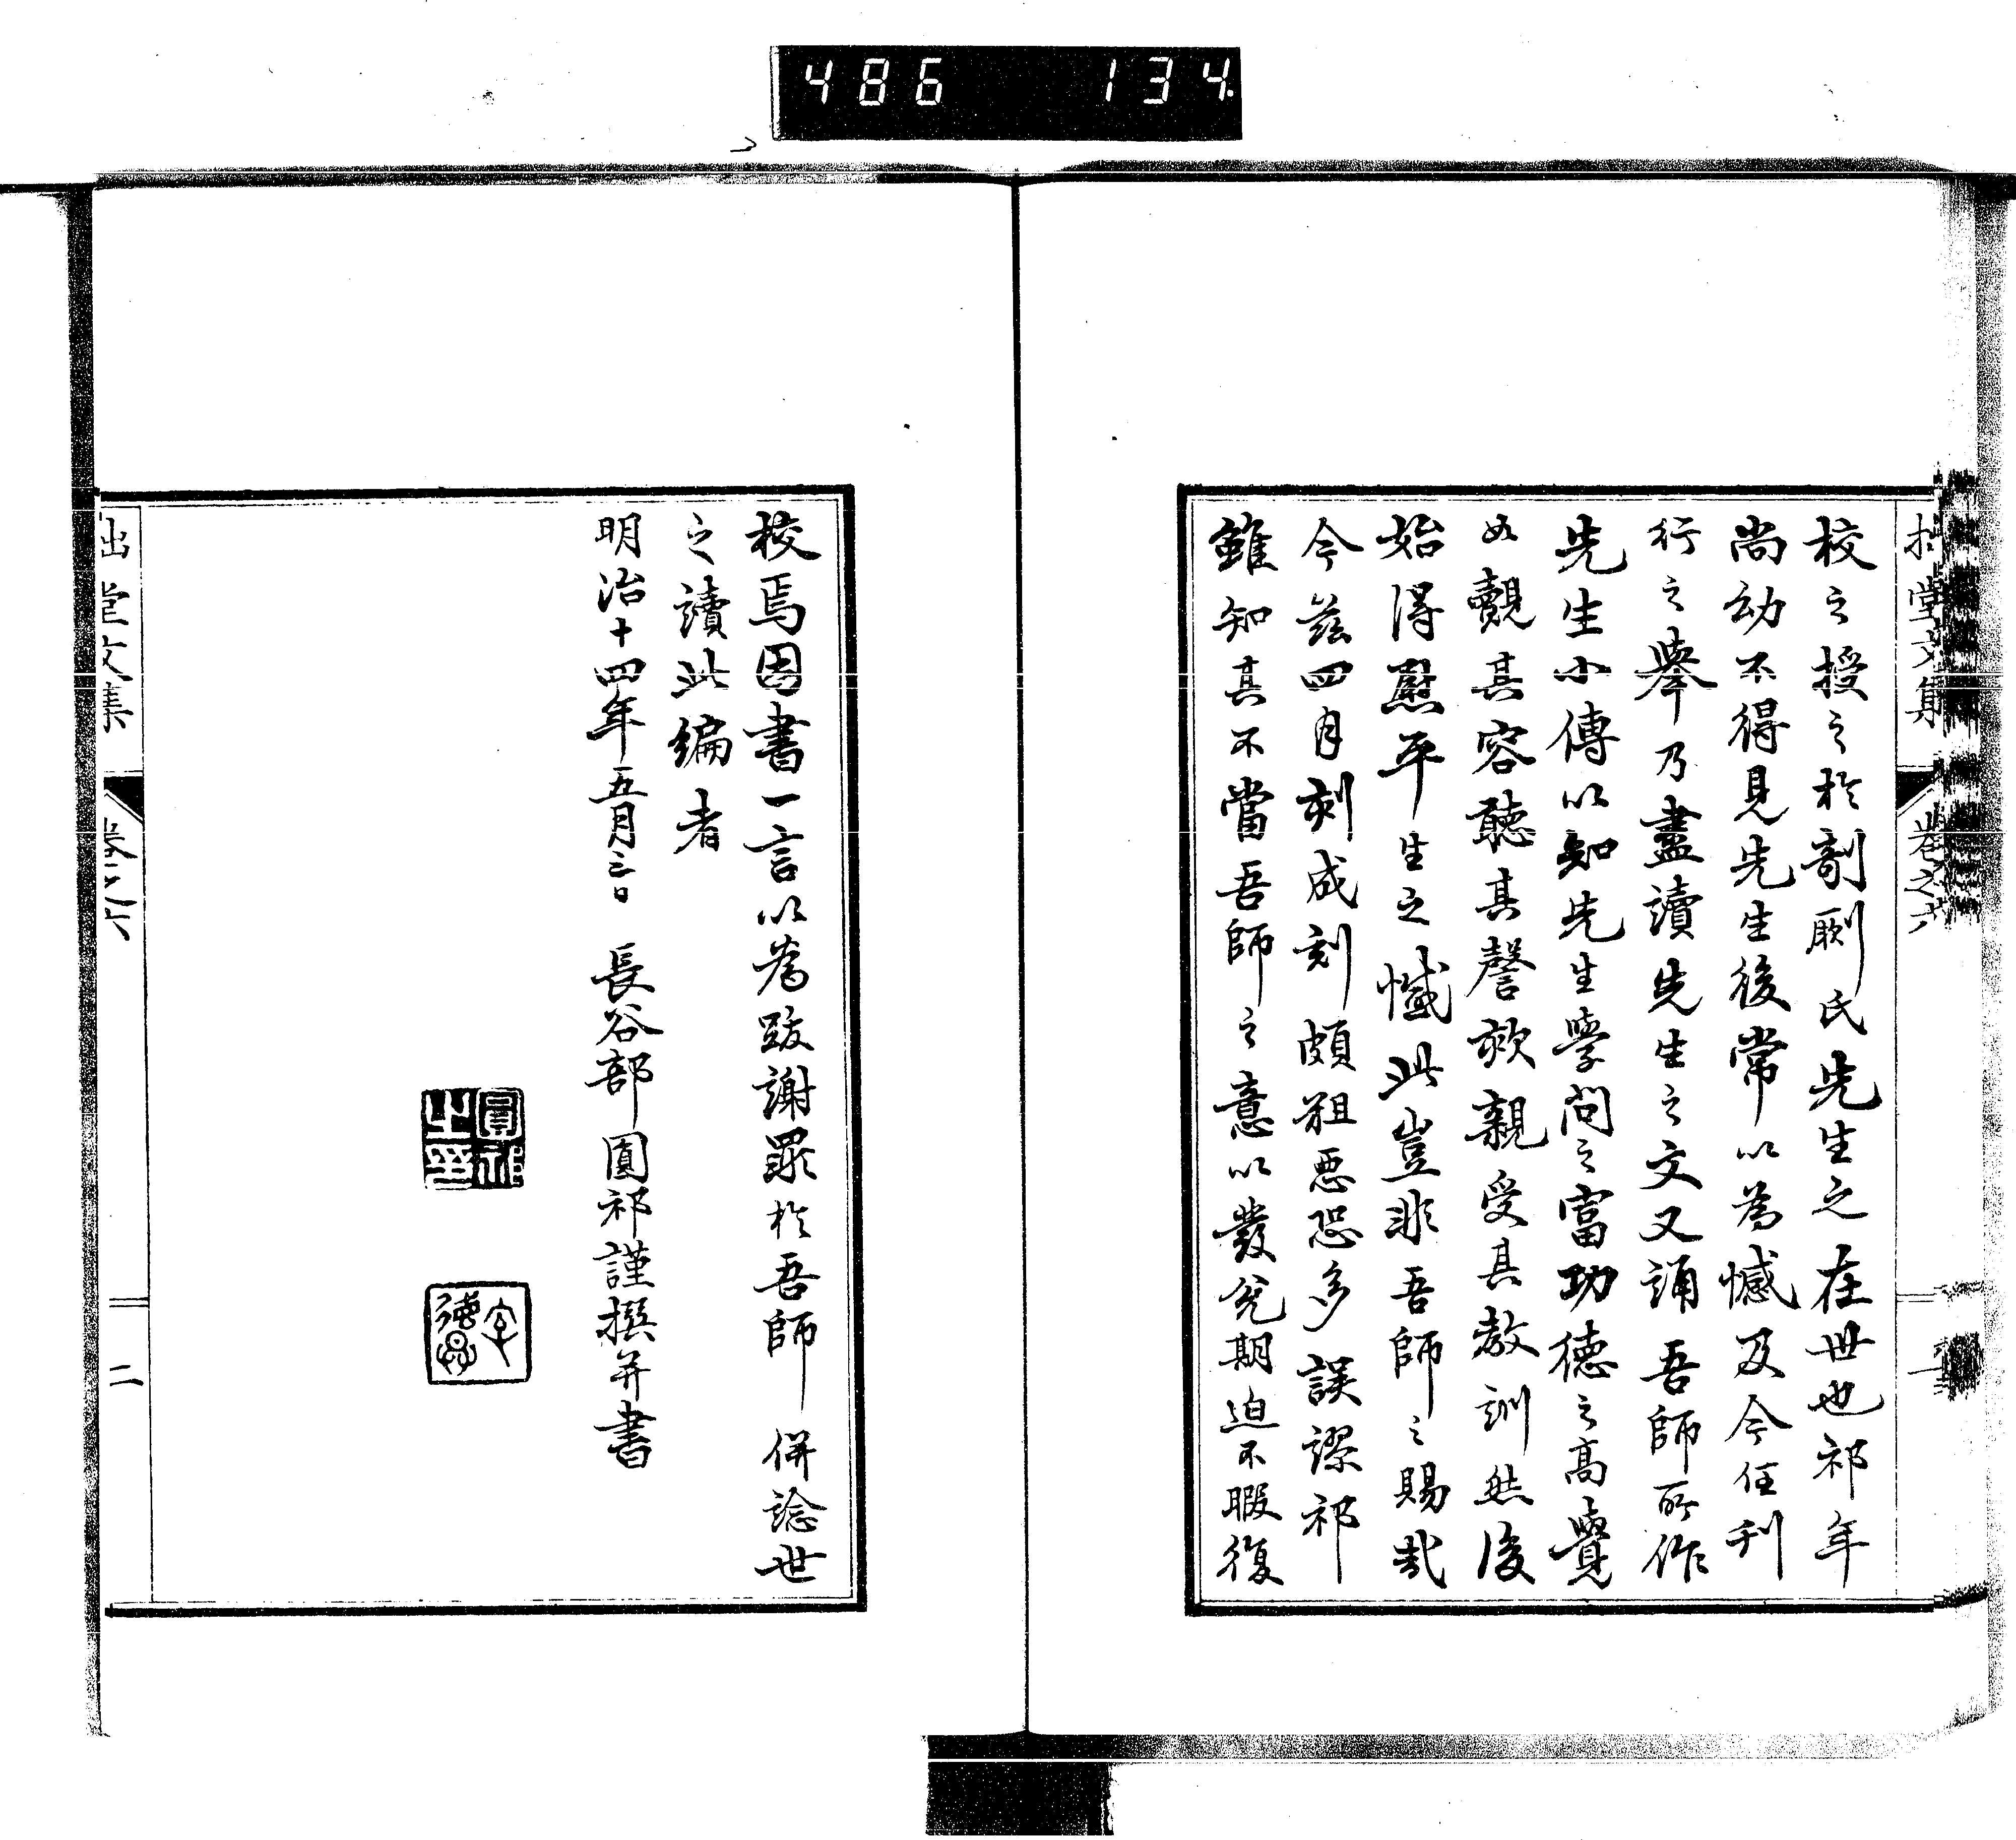 486 134
拙堂文集 卷之六 一
校之授之於剞劂氏先生之在世也祁年
尚幼不得見先生後常以為憾及今任刊
行之擧乃盡讀先生之文又誦吾師所作
先生小傳以知先生學問之富功德之高覺
如覿其容聽其謦欬親受其教訓然後
始得慰平生之憾此豈非吾師之賜哉
今茲四月刻成刻頗粗惡恐多誤謬祁
雖知其不當吾師之意以發兌期迫不暇復
校焉因書一言以為跋謝罪於吾師併諗世
之讀此編者
明治十四年五月三日 長谷部圓祁謹撰并書
圓祁之印
字
拙堂文集 卷之六 二